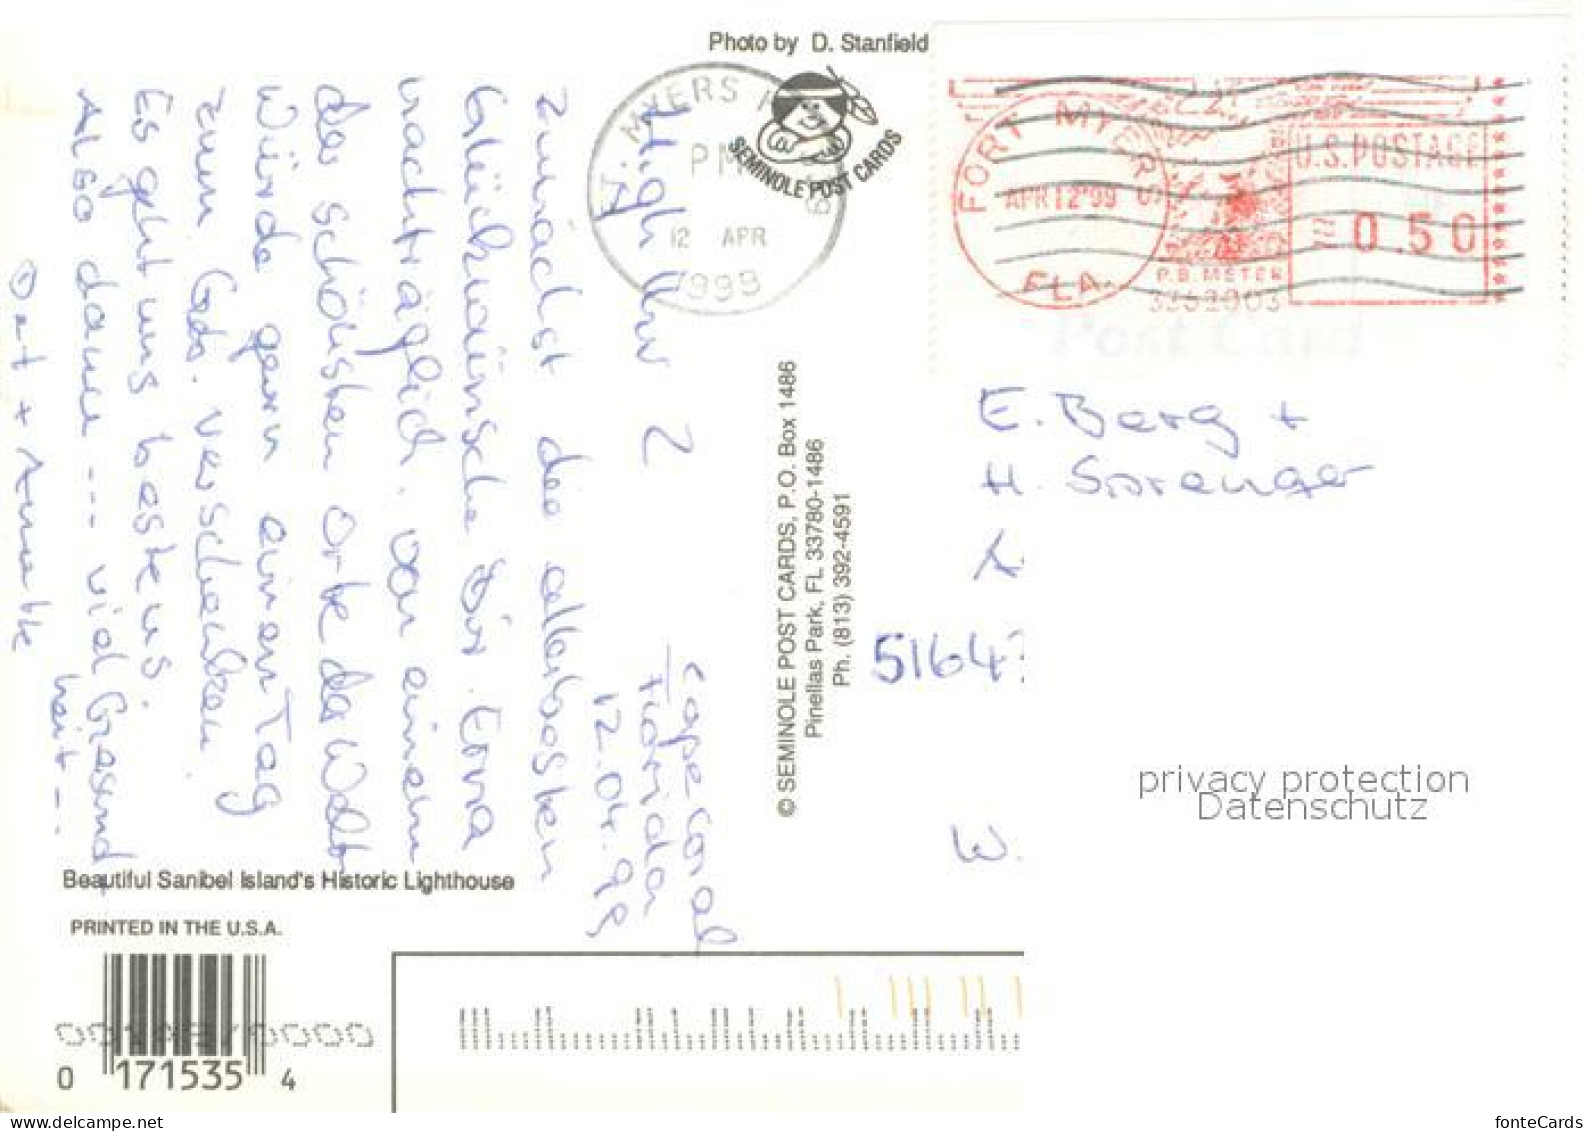 Photo by D. Stanfield
SEMINOLE POST CARDS
MYERS
PM
12 APR
1999
FORT MYERS
APR 12'99
FLA.
U.S. POSTAGE
0.50
P.B. METER
Post Card
Cape Coral
Florida
12.04.99
zunächst die allerbesten
Glückwünsche Dir. Erna
nachträglich. Von einem
der schönsten Orte der Welt
würde gern einen Tag
zum Geb. verschenken.
Es geht uns bestens.
Also dann --- viel Gesund
heit ---
E. Berg +
H. Sprenger
5164
W.
© SEMINOLE POST CARDS, P.O. Box 1486
Pinellas Park, FL 33780-1486
Ph. (813) 392-4591
privacy protection
Datenschutz
Beautiful Sanibel Island's Historic Lighthouse
PRINTED IN THE U.S.A.
0 171535 4
www.ansichtskarten-center.de
fonteCards